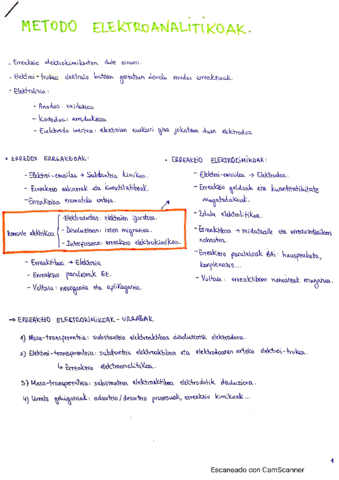 METODO ELEKTROANALITIKOAK.
- Erreakzio elektrokimikoetan dute oinarri.
- Elektroi-trukea elektrodo batean gertatzen deneko erredox erreakzioak.
- Elektrolisia:
- Anodoa: oxidazioa
- Katodoa: erredukzioa
- Elektrodo inertea: elektroien euskarri gisa jokatzen duen elektrodoa
• ERREDOX ERREAKZIOAK:
- Elektroi-emailea → Substantzia kimikoa.
- Erreakzio azkarrak eta kuantitatiboak.
- Erreakzioa eramateko ontzia.
korronte elektrikoa
- Elektrodoetan: elektroien igarotzea.
- Disoluzioan: ioien migrazioa.
- Interfasean: erreakzio elektrokimikoa.
- Erreaktiboa → Elektroia
- Erreakzio paraleloak Ez.
- Voltaia: neurgarria eta aplikagarria.
• ERREAKZIO ELEKTROKIMIKOAK:
- Elektroi-emailea → Elektrodoa.
- Erreakzio geldoak eta kuantitatibitate mugatukoak.
- Zelula elektrolitikoa.
- Erreaktiboa → oxidatzaile eta erreduktoreen nahastea.
- Erreakzio paraleloak BAI: hauspeaketa, konplexazio...
- Voltaia: erreaktiboen nahasteak mugatua.
→ ERREAKZIO ELEKTROKIMIKOAK - URRATSAK
1) Masa-transferentzia: substantzia elektroaktiboa disoluziotik elektrodora.
2) Elektroi-transferentzia: substantzia elektroaktiboa eta elektrodoaren arteko elektroi-trukea.
↳ Erreakzio elektroanalitikoa.
3) Masa-transferentzia: substantzia elektroaktiboa elektrodotik disoluziora.
4) Urrats gehigarriak: adsortzio/desortzio prozesuak, erreakzio kimikoak...
1
Escaneado con CamScanner